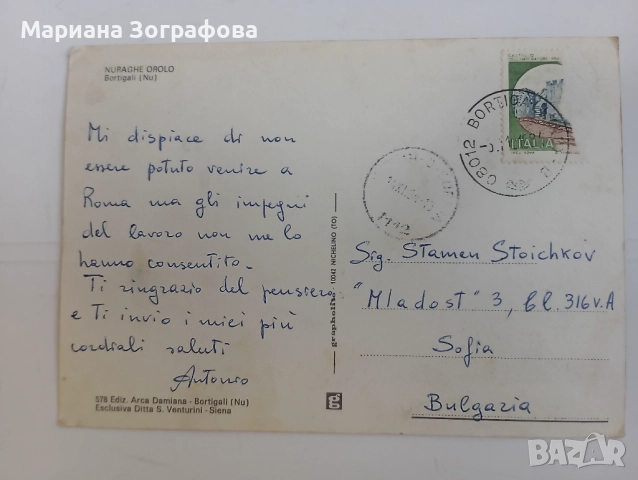 Мариана Зографова
NURAGHE OROLO
Bortigali (Nu)
Mi dispiace di non
essere potuto venire a
Roma ma gli impegni
del lavoro non me lo
hanno consentito.
Ti ringrazio del pensiero
e Ti invio i miei più
cordiali saluti
Antonio
578 Ediz. Arca Damiana - Bortigali (Nu)
Esclusiva Ditta S. Venturini - Siena
10042 NICHELINO (TO)
g
ITALIA
08012 BORTIGALI
1112
Sig. Stamen Stoichkov
"Mladost" 3, bl. 316 v. A
Sofia
Bulgaria
BAZAR